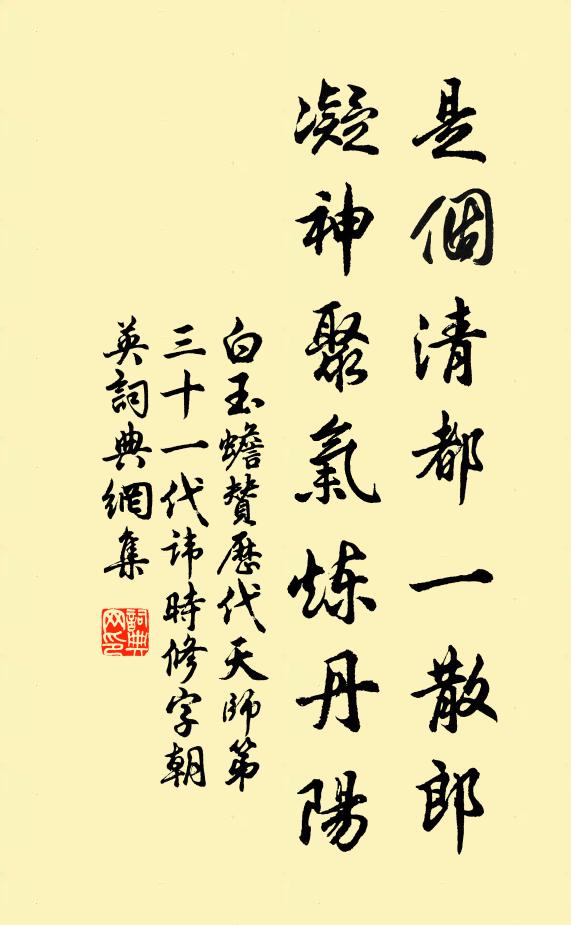 是個清都一散郎
凝神聚氣炼丹陽
白玉蟾贊歷代天師第
三十一代諱時修字朝
英詞典網集
詞典
网印